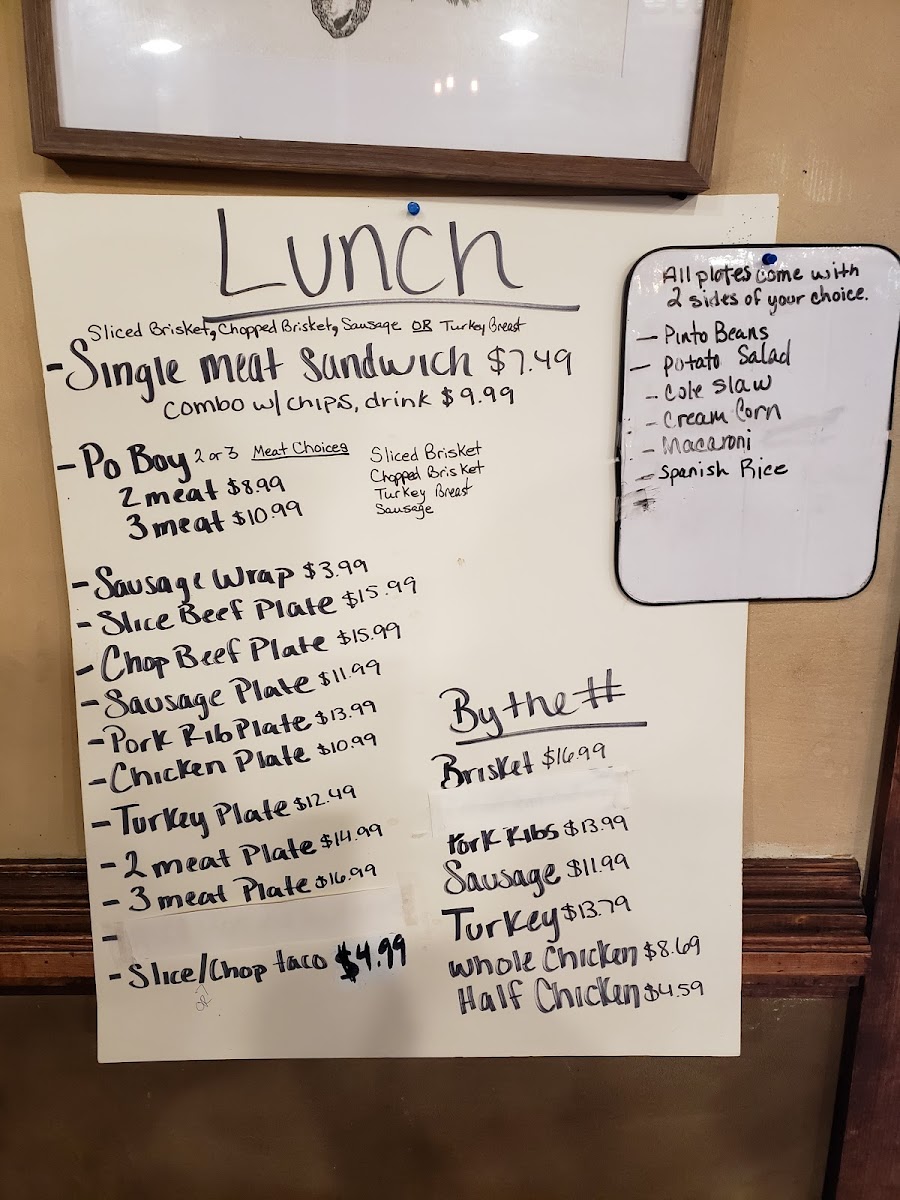 Lunch
Sliced Brisket, Chopped Brisket, Sausage OR Turkey Breast
- Single meat Sandwich $7.49
combo w/chips, drink $9.99
- Po Boy 2 or 3 Meat Choices
2 meat $8.99
3 meat $10.99
Sliced Brisket
Chopped Brisket
Turkey Breast
Sausage
- Sausage Wrap $3.99
- Slice Beef Plate $15.99
- Chop Beef Plate $15.99
- Sausage Plate $11.99
- Pork Rib Plate $13.99
- Chicken Plate $10.99
- Turkey Plate $12.49
- 2 meat Plate $14.99
- 3 meat Plate $16.99
-
- Slice/Chop taco $4.99
OR
By the #
Brisket $16.99
Pork Ribs $13.99
Sausage $11.99
Turkey $13.79
Whole Chicken $8.69
Half Chicken $4.59
All plates come with
2 sides of your choice.
- Pinto Beans
- Potato Salad
- Cole Slaw
- Cream Corn
- Macaroni
- Spanish Rice